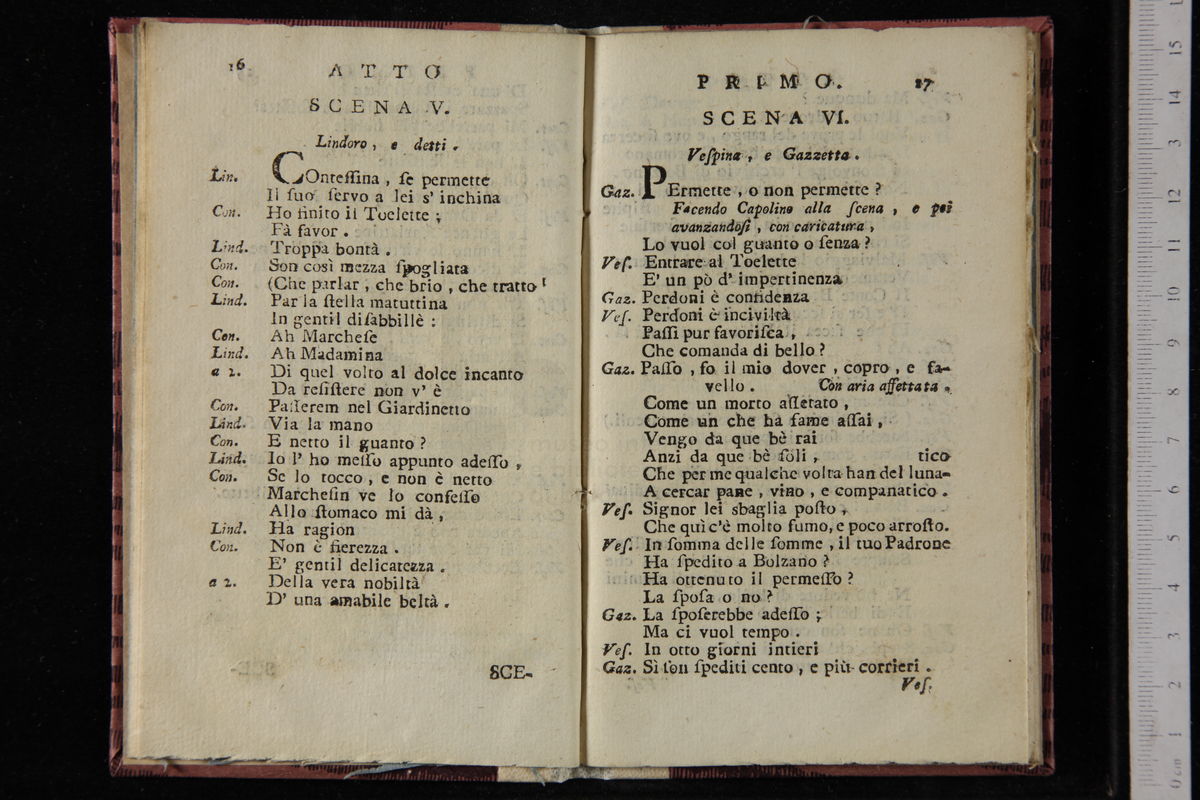 16
ATTO
SCENA V.
Lindoro, e detti.
Lin. COnteſſina, ſe permette
Il ſuo ſervo a lei s' inchina
Con. Ho finito il Toelette;
Fà favor.
Lind. Troppa bontà.
Con. Son così mezza ſpogliata
Con. (Che parlar, che brio, che tratto!
Lind. Par la ſtella matuttina
In gentil diſabbillè:
Con. Ah Marcheſe
Lind. Ah Madamina
a 2. Di quel volto al dolce incanto
Da reſiſtere non v' è
Con. Paſſerem nel Giardinetto
Lind. Via la mano
Con. E netto il guanto?
Lind. Io l' ho meſſo appunto adeſſo,
Con. Se lo tocco, e non è netto
Marcheſin ve lo confeſſo
Allo ſtomaco mi dà,
Lind. Ha ragion
Con. Non è fierezza.
E' gentil delicatezza.
a 2. Della vera nobiltà
D' una amabile beltà.
SCE-
PRIMO.
17
SCENA VI.
Veſpina, e Gazzetta.
Gaz. PErmette, o non permette?
Facendo Capolino alla ſcena, e poi
avanzandoſi, con caricatura,
Lo vuol col guanto o ſenza?
Veſ. Entrare al Toelette
E' un pò d' impertinenza
Gaz. Perdoni è confidenza
Veſ. Perdoni è inciviltà
Paſſi pur favoriſca,
Che comanda di bello?
Gaz. Paſſo, fo il mio dover, copro, e fa-
vello. Con aria affettata.
Come un morto aſſetato,
Come un che ha fame aſſai,
Vengo da que bè rai
Anzi da que bè ſoli, tico
Che per me qualche volta han del luna-
A cercar pane, vino, e companatico.
Veſ. Signor lei sbaglia poſto,
Che quì c'è molto fumo, e poco arroſto.
Veſ. In ſomma delle ſomme, il tuo Padrone
Ha ſpedito a Bolzano?
Ha ottenuto il permeſſo?
La ſpoſa o no?
Gaz. La ſpoſerebbe adeſſo;
Ma ci vuol tempo.
Veſ. In otto giorni intieri
Gaz. Sì ſon ſpediti cento, e più corrieri.
Veſ.
0 cm 1 2 3 4 5 6 7 8 9 10 11 12 13 14 15